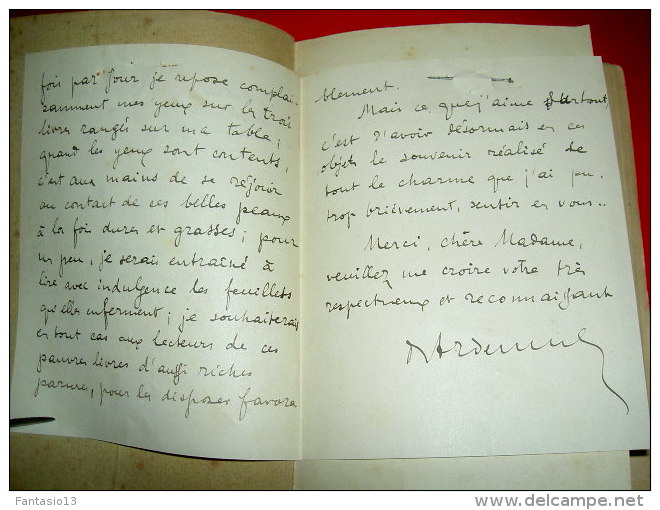 fois par jour je repose complai-
samment mes yeux sur les trois
livres rangés sur ma table ;
quand les yeux sont contents,
c'est aux mains de se réjouir
au contact de ces belles peaux
à la fois dures et grasses ; pour
un peu, je serais entraîné à
lire avec indulgence les feuillets
qu'elles enferment ; je souhaiterais
en tout cas aux lecteurs de ces
pauvres livres d'aussi riches
parures, pour les disposer favora
blement.
Mais ce que j'aime surtout,
c'est d'avoir désormais en ces
objets le souvenir réalisé de
tout le charme que j'ai pu,
trop brièvement, sentir en vous..
Merci, chère Madame,
veuillez me croire votre très
respectueux et reconnaissant
Fantasio13
delcampe.net